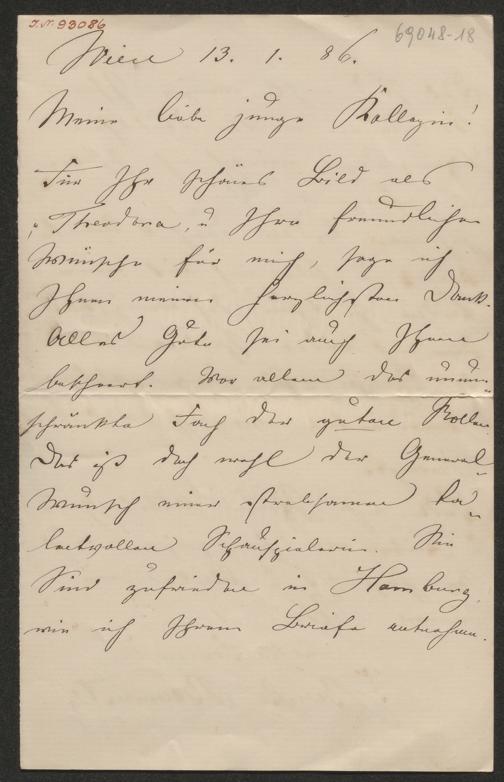 I.N. 93086
69048-18
Wien 13. 1. 86.
Meine liebe junge Kollegin!
Für Ihr schönes Bild als
"Theodora", u Ihre freundlichen
Wünsche für mich, sage ich
Ihnen meinen herzlichsten Dank.
Alles Gute sei auch Ihnen
bescheert. Vor allem das unum-
schränkte Fach der guten Rollen.
Das ist doch wohl der General-
wunsch einer strebsamen ta-
lentvollen Schauspielerin. Sie
sind zufrieden in Hamburg,
wie ich Ihrem Briefe entnehme.